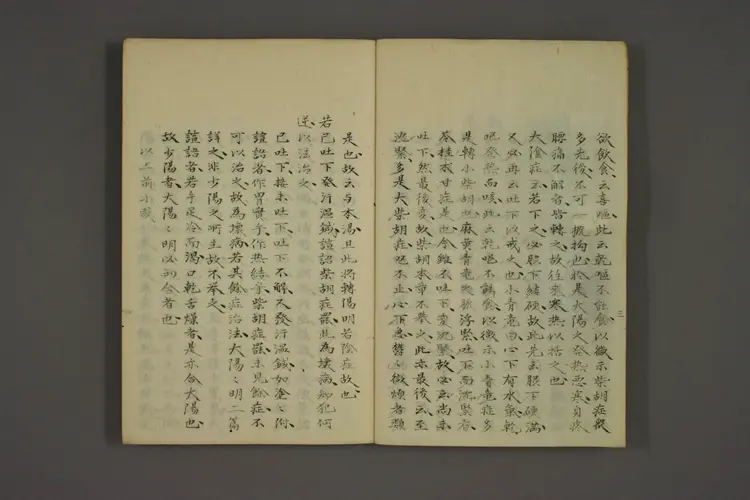 欲飲食云喜嘔此云乾嘔不能食以徴示柴胡症發
多先後不可一概拘也於是太陽之發熱悪寒身疼
腰痛不解者皆轉之故往来寒熱以括之也
太陰症云若下之必胸下結硬故此先云脇下硬満
又必再云吐下以戒之也小青竜云心下有水氣乾
嘔發熱而咳此云乾嘔不能食以徴示小青竜症多
是轉小柴胡也麻黄青竜脉浮緊吐下而沈緊者
苓桂朮甘症是也今雖不吐下変沈緊故必云尚未
吐下然最後変故柴胡本章不挙之此亦最後云至
沈緊多是大柴胡症嘔不止心下急鬱々微煩者類
是也故云与本湯且此将轉陽明若陰症故也
若已吐下發汗温鍼譫語柴胡症罷此為壊病知犯何
逆以法治之
已吐下接未吐下吐下不解又發汗温鍼如塗々附
譫語者作胃實乎作热結乎柴胡症罷未見餘症不
可以治之故為壊病若其餘症治法太陽々明二篇
詳之非少陽之所主故不挙之
譫語者若手足冷而渇口乾舌燥者是亦合太陽也
故少陽者太陽々明必列合者也
以上前小歇
三